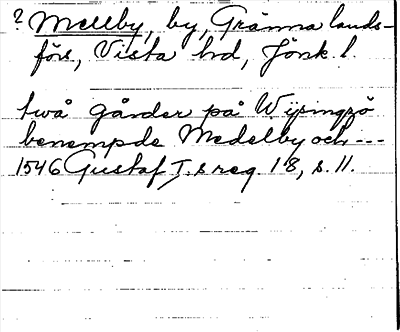 ? Mellby, by, Gränna lands-
förs, Vista hd, Jönk. l.
två gårder på Wisingzö
benempde Medelby och ---
1546 Gustaf I.s reg. 18, s. 11.